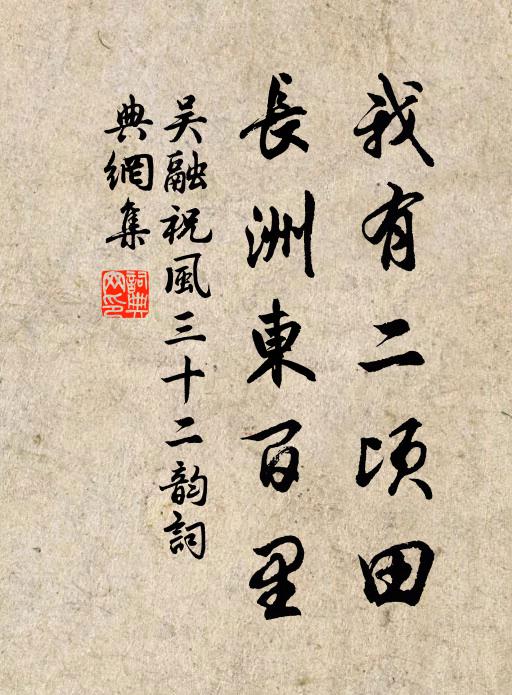 我有二頃田
長洲東百里
吴融祝風三十二韵詞
典網集
詞典網印